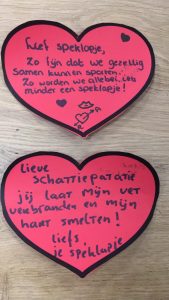 Lief speklapje,
Zo fijn dat we gezellig
samen kunnen sporten.
Zo worden we allebei een
minder een speklapje!
Lieve
schattiepatatie
jij laat mijn vet
verbranden en mijn
hart smelten!
liefs,
je speklapje